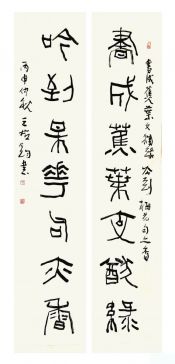 書成蕉葉文猶綠
吟到梅花句亦香
書成蕉葉文猶綠 吟到梅花句亦香
丙申仲秋